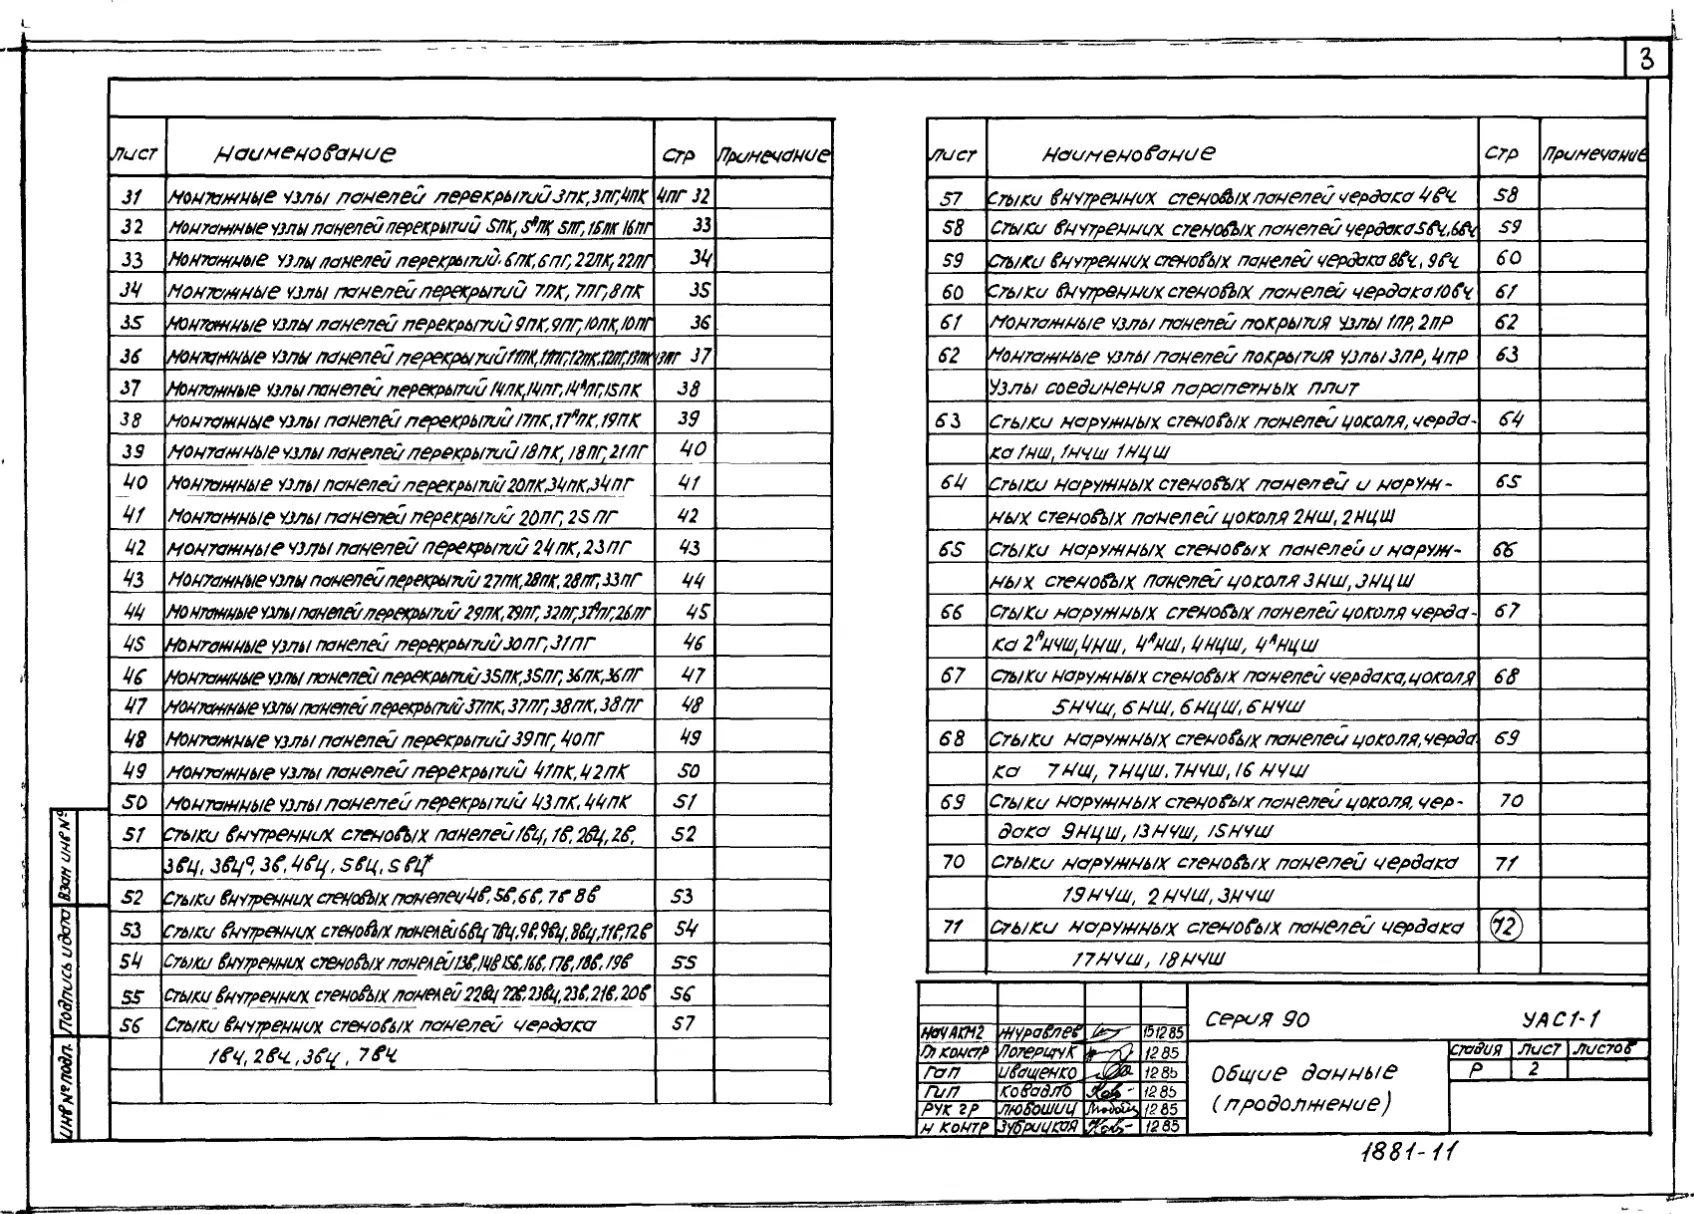 3
Лист Наименование Стр Примечание
31 Монтажные узлы панелей перекрытий 3ПК, 3ПГ, 4ПК 4ПГ 32
32 Монтажные узлы панелей перекрытий 5ПК, 5ᴬПК 5ПГ, 16ПК 16ПГ 33
33 Монтажные узлы панелей перекрытий 6ПК, 6ПГ, 22ПК, 22ПГ 34
34 Монтажные узлы панелей перекрытий 7ПК, 7ПГ, 8ПК 35
35 Монтажные узлы панелей перекрытий 9ПК, 9ПГ, 10ПК, 10ПГ 36
36 Монтажные узлы панелей перекрытий 11ПК, 11ПГ, 12ПК, 12ПГ, 13ПК 13ПГ 37
37 Монтажные узлы панелей перекрытий 14ПК, 14ПГ, 14ᴬПГ, 15ПК 38
38 Монтажные узлы панелей перекрытий 17ПК, 17ᴬПК, 19ПК 39
39 Монтажные узлы панелей перекрытий 18ПК, 18ПГ, 21ПГ 40
40 Монтажные узлы панелей перекрытий 20ПК, 34ПК, 34ПГ 41
41 Монтажные узлы панелей перекрытий 20ПГ, 25ПГ 42
42 Монтажные узлы панелей перекрытий 24ПК, 23ПГ 43
43 Монтажные узлы панелей перекрытий 27ПК, 28ПК, 28ПГ, 33ПГ 44
44 Монтажные узлы панелей перекрытий 29ПК, 29ПГ, 32ПГ, 32ᴬПГ, 26ПГ 45
45 Монтажные узлы панелей перекрытий 30ПГ, 31ПГ 46
46 Монтажные узлы панелей перекрытий 35ПК, 35ПГ, 36ПК, 36ПГ 47
47 Монтажные узлы панелей перекрытий 37ПК, 37ПГ, 38ПК, 38ПГ 48
48 Монтажные узлы панелей перекрытий 39ПГ, 40ПГ 49
49 Монтажные узлы панелей перекрытий 41ПК, 42ПК 50
50 Монтажные узлы панелей перекрытий 43ПК, 44ПК 51
51 Стыки внутренних стеновых панелей 1вц, 1в, 2вц, 2в, 52
3вц, 3вцᵃ, 3в, 4вц, 5вц, 5вц
52 Стыки внутренних стеновых панелей 4в, 5в, 6в, 7в 8в 53
53 Стыки внутренних стеновых панелей 6вц 7вц, 9в, 9вц, 8вц, 11в, 12в 54
54 Стыки внутренних стеновых панелей 13в, 14в 15в, 16в, 17в, 18в, 19в 55
55 Стыки внутренних стеновых панелей 22вц 22в, 23вц, 23в, 21в, 20в 56
56 Стыки внутренних стеновых панелей чердака 57
1вч, 2вч, 3вч, 7вч
Лист Наименование Стр Примечание
57 Стыки внутренних стеновых панелей чердака 4вч 58
58 Стыки внутренних стеновых панелей чердака 5вч, 6вч 59
59 Стыки внутренних стеновых панелей чердака 8вч, 9вч 60
60 Стыки внутренних стеновых панелей чердака 10вч 61
61 Монтажные узлы панелей покрытия узлы 1ПР, 2ПР 62
62 Монтажные узлы панелей покрытия узлы 3ПР, 4ПР 63
Узлы соединения парапетных плит
63 Стыки наружных стеновых панелей цоколя, черда- 64
ка 1НШ, 1НЧШ 1НЦШ
64 Стыки наружных стеновых панелей и наруж- 65
ных стеновых панелей цоколя 2НШ, 2НЦШ
65 Стыки наружных стеновых панелей и наруж- 66
ных стеновых панелей цоколя 3НШ, 3НЦШ
66 Стыки наружных стеновых панелей цоколя черда- 67
ка 2ᴬНЧШ, 4НШ, 4ᴬНШ, 4НЦШ, 4ᴬНЦШ
67 Стыки наружных стеновых панелей чердака, цоколя 68
5НЧШ, 6НШ, 6НЦШ, 6НЧШ
68 Стыки наружных стеновых панелей цоколя, черда 69
ка 7НШ, 7НЦШ, 7НЧШ, 16НЧШ
69 Стыки наружных стеновых панелей цоколя, чер- 70
дака 9НЦШ, 13НЧШ, 15НЧШ
70 Стыки наружных стеновых панелей чердака 71
19НЧШ, 2НЧШ, 3НЧШ
71 Стыки наружных стеновых панелей чердака 72
17НЧШ, 18НЧШ
Взам инв №
Подпись и дата
Инв № подл.
Нач АКМ2 Журавлев 15 12 85
Гл констр Потерщук 12 85
Гап Иващенко 12 85
Гип Ковадло 12 85
Рук гр Любошиц 12 85
Н контр Зубрицкая 12 85
Серия 90 УАС1-1
Общие данные
(продолжение)
Стадия Лист Листов
Р 2
1881-11